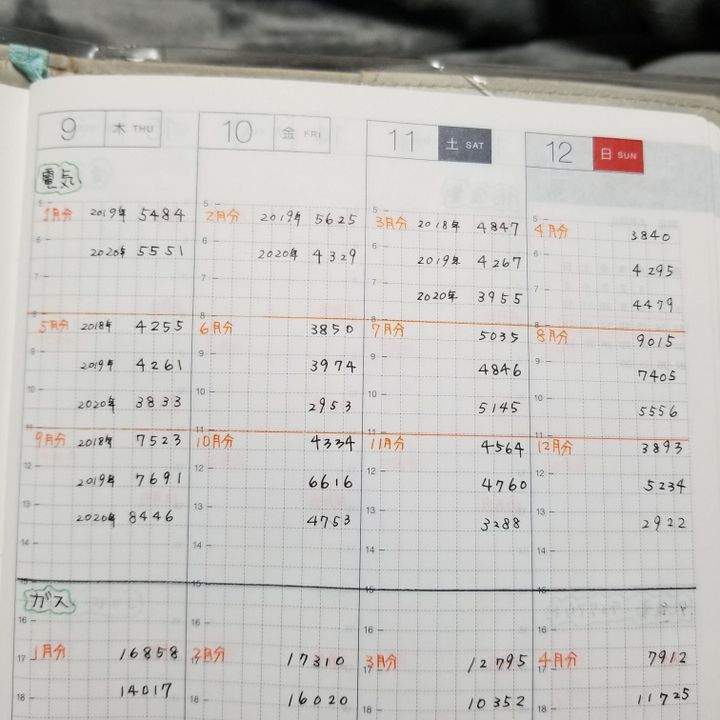 9 木 THU
10 金 FRI
11 土 SAT
12 日 SUN
電気
1月分 2019年 5484
2020年 5551
2月分 2019年 5625
2020年 4329
3月分 2018年 4847
2019年 4267
2020年 3955
4月分 3840
4295
4479
5月分 2018年 4255
2019年 4261
2020年 3833
6月分 3850
3974
2953
7月分 5035
4846
5145
8月分 9015
7405
5556
9月分 2018年 7523
2019年 7691
2020年 8446
10月分 4334
6616
4753
11月分 4564
4760
3288
12月分 3893
5234
2922
ガス
1月分 16858
14017
2月分 17310
16020
3月分 12795
10352
4月分 7912
11725